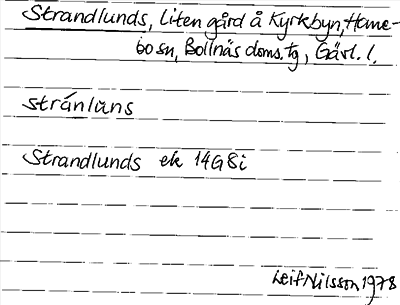 Strandlunds, liten gård å Kyrkbyn, Hane-
bo sn, Bollnäs doms. tg, Gävl. l.
stránluns
Strandlunds ek 14G8i
Leif Nilsson 1978